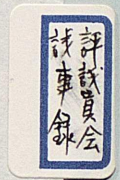 評議員会
議事録